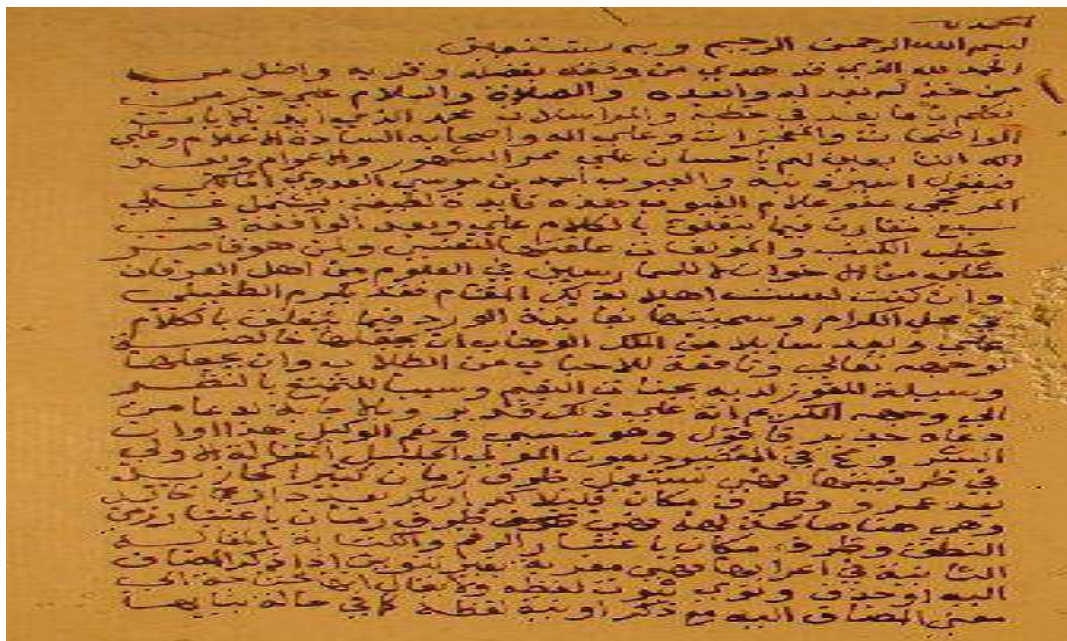 الحمد لله
بسم الله الرحمن الرحيم وبه نستعين
الحمد لله الذي قد هدي من وفقه بفضله وقربه واضل من
من خذله بعدله وابعده والصلاة والسلام علي خير من
تكلم باما بعد في خطبه والمراسلات محمد الذي ايد بالايات
الواضحات والمعجزات وعلي اله واصحابه السادة الاعلام وعلي
التابعين لهم باحسان علي ممر الشهور والاعوام وبعد
فيقول اسير ذنبه والعيوب احمد بن موسي العدوي المالكي
المرتجي عفو علام الغيوب هذه فايدة لطيفة تشتمل علي
سبع مقالات فيما يتعلق بالكلام علي وبعد الواقعة في
خطب الكتب والمولفات علقتها لنفسي ولمن هو قاصر
مثلي من الاخوان للممارسين في العلوم من اهل العرفان
وان كنت لست اهلا لذلك المقام فقد يكرم الطفيلي
في محل الكرام وسميتها الورد فيما يتعلق بالكلام
علي وبعد سايلا من الملك الوهاب ان يجعلها خالصة
لوجهه تعالي ونافعة للاحباب من الطلاب وان يجعلها
وسيلة للفوز لديه بجنات النعيم وسببا للتمتع بالنظر
الي وجهه الكريم انه علي ذلك قدير وبالاجابة لدعا من
دعاه جدير فاقول وهو حسبي ونعم الوكيل هذا اوان
الشروع في المقصود بعون المولي الجليل المقالة الاولي
في ظرفيتها فهي تستعمل ظرف زمان كثيرا كجا زيد
بعد عمرو وظرف مكان قليلا كدار زيد بعد دار
وهي هنا صالحة لهذا فهي ظرف زمان باعتبار زمن
النطق وظرف مكان باعتبار الرقم والكتابة المقالة
الثانية في اعرابها فهي معربة بغير تنوين اذا ذكر المضاف
اليه او حذف ونوي ثبوت لفظه ولا يقال
معني المضاف اليه مع ذكر او نية لفظه في حالة بنايها